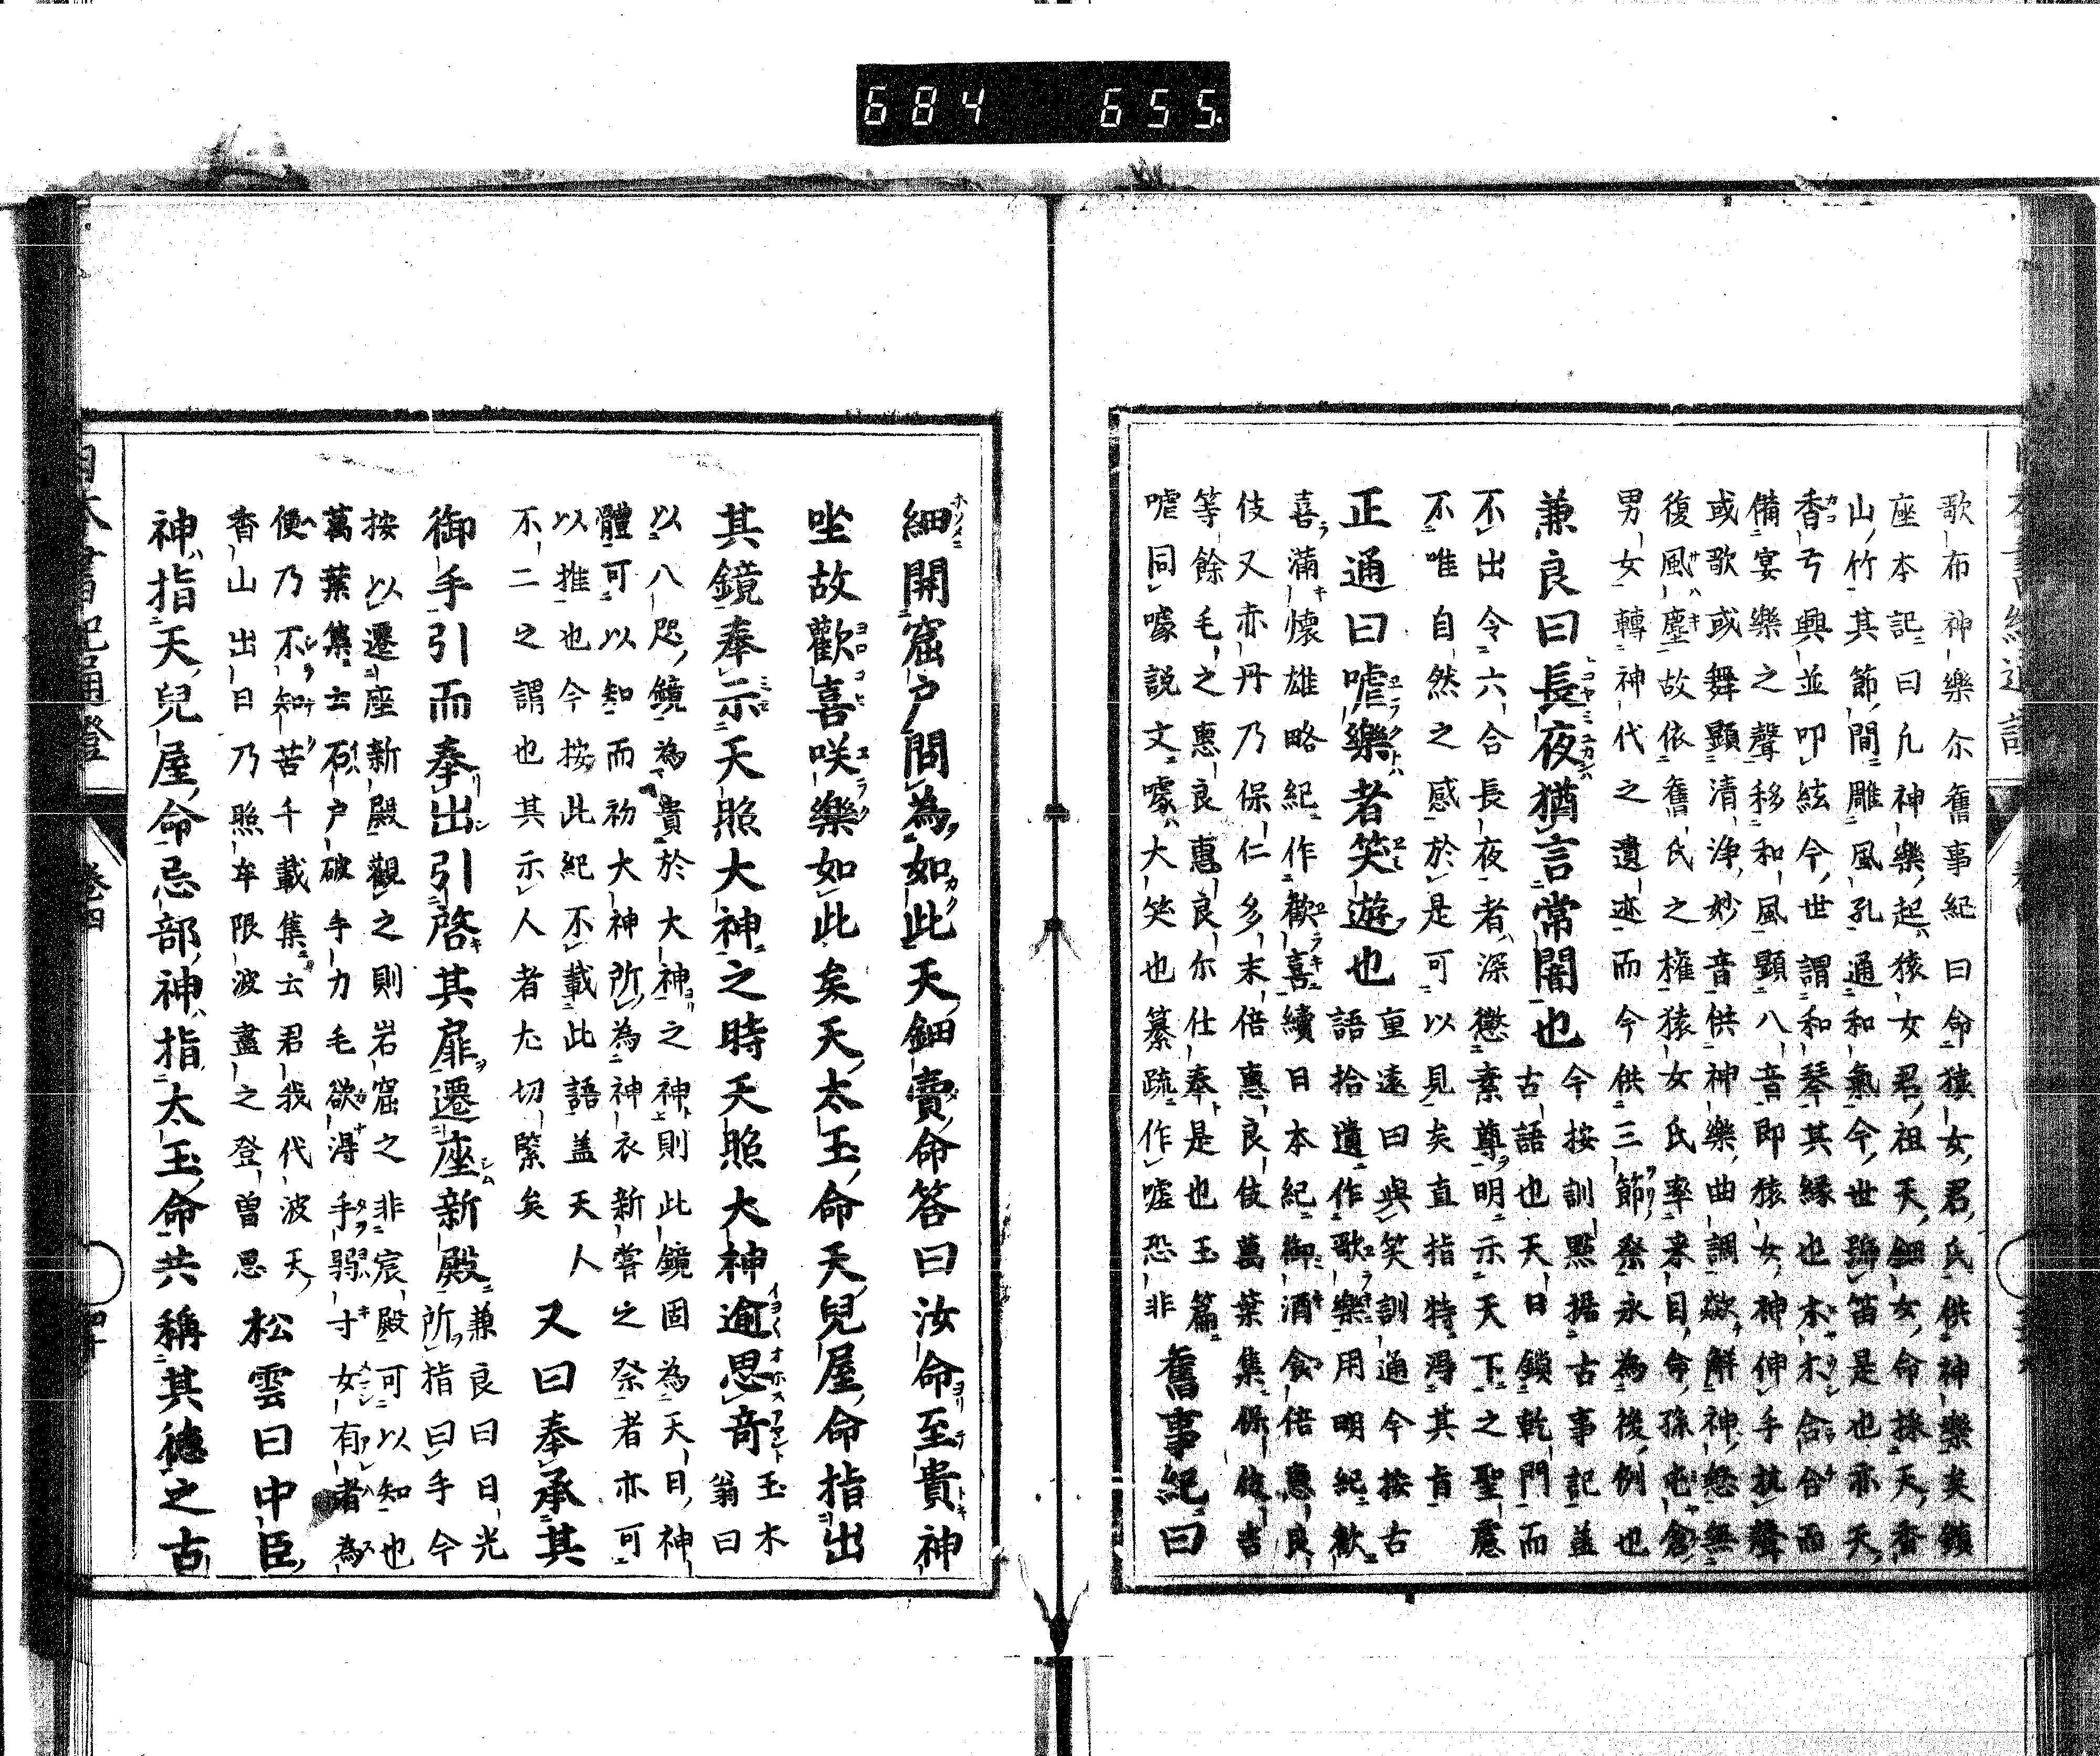 684 655
歌布神樂尓舊事紀曰命猿女君氏供神樂矣鎮
座本記曰凡神樂起猿女君祖天鈿女命採天香
山竹其節間雕風孔通和氣今世號笛是也亦天
香弓興並叩絃今世謂和琴其縁也木木合合而
備宴樂之聲移和風顯八音即猿女神伸手抗聲
或歌或舞顯清淨妙音供神樂曲調歟解神怒無
復風塵故依舊氏之權猿女氏率来目命孫屯倉
男女轉神代之遺迹而今供三節祭永為後例也
兼良曰長夜猶言常闇也
今按訓點据古事記蓋
古語也天日鎖乾門而
不出令六合長夜者深懲素尊明示天下之聖慮
不唯自然之感於是可以見矣直指特得其肯
正通曰㖸樂者笑遊也
重遠曰與笑訓通今按古
語拾遺作歌樂用明紀歡
喜滿懷雄略紀作歡喜續日本紀御酒食倍惠良
伎又亦丹乃保仁多末倍惠良伎萬葉集保伎吉
等餘毛之惠良惠良尓仕奉是也玉篇
㖸同噱説文噱大笑也纂疏作嘘恐非
舊事紀曰
細開窟戸間為如此天鈿賣命答曰汝命至貴神
坐故歡喜咲樂如此矣天太玉命天兒屋命指出
其鏡奉示天照大神之時天照大神逾思奇
玉木
翁曰
以八咫鏡為貴於大神之神則此鏡固為天日神
體可以知而初大神所為神衣新嘗之祭者亦可
以推也今按此紀不載此語蓋天人
不二之謂也其示人者尤切緊矣
又曰奉承其
御手引而奉出引啓其扉遷座新殿
兼良曰日光
所指曰手今
按以遷座新殿觀之則岩窟之非宸殿可以知也
萬葉集云石戸破手力毛欲得手弱寸女有者為
便乃不知苦千載集云君我代波天
香山出日乃照牟限波盡之登曽思
松雲曰中臣
神指天兒屋命忌部神指太玉命共稱其德之古
日本書紀通證
卷四